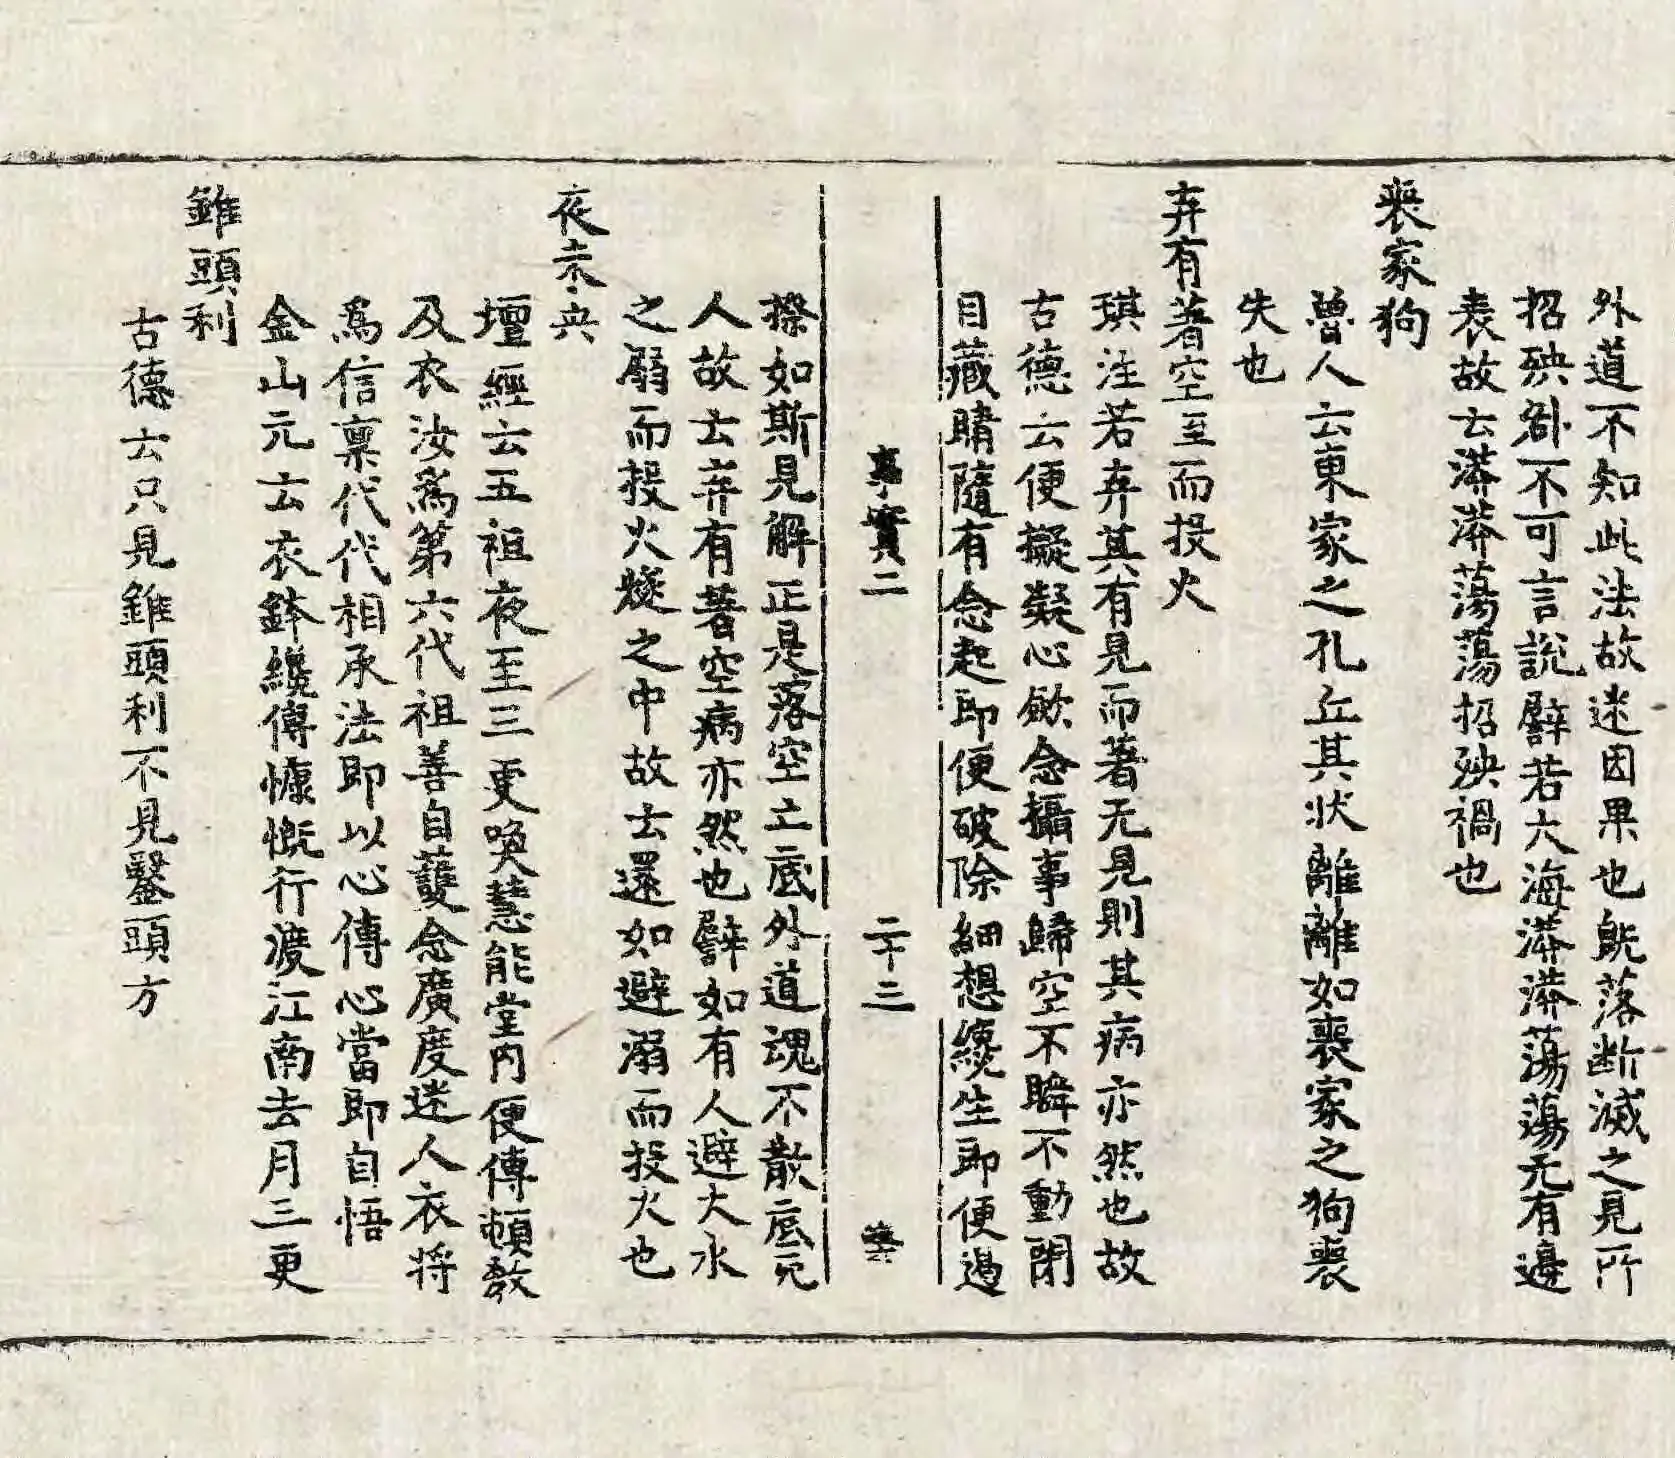 外道不知此法故迷因果也既落断滅之見所
招殃咎不可言說譬若大海漭漭蕩蕩无有邊
表故云漭漭蕩蕩招殃禍也
喪家狗
魯人云東家之孔丘其状離離如喪家之狗喪
失也
弃有著空至而投火
琪注若弃其有見而著无見則其病亦然也故
古德云便擬凝心歛念攝事歸空不瞬不動閉
目藏睛隨有念起即便破除細想纔生即便遏
事實二 二十三
捺如斯見解正是落空亡底外道魂不散底死
人故云弃有著空病亦然也譬如有人避大水
之溺而投火燧之中故云還如避溺而投火也
夜未央
壇經云五祖夜至三更喚慧能堂内便傳頓教
及衣汝為第六代祖善自護念廣度迷人衣将
為信稟代代相承法即以心傳心當即自悟
金山元云衣鉢纔傳慷慨行渡江南去月三更
錐頭利
古德云只見錐頭利不見鑿頭方